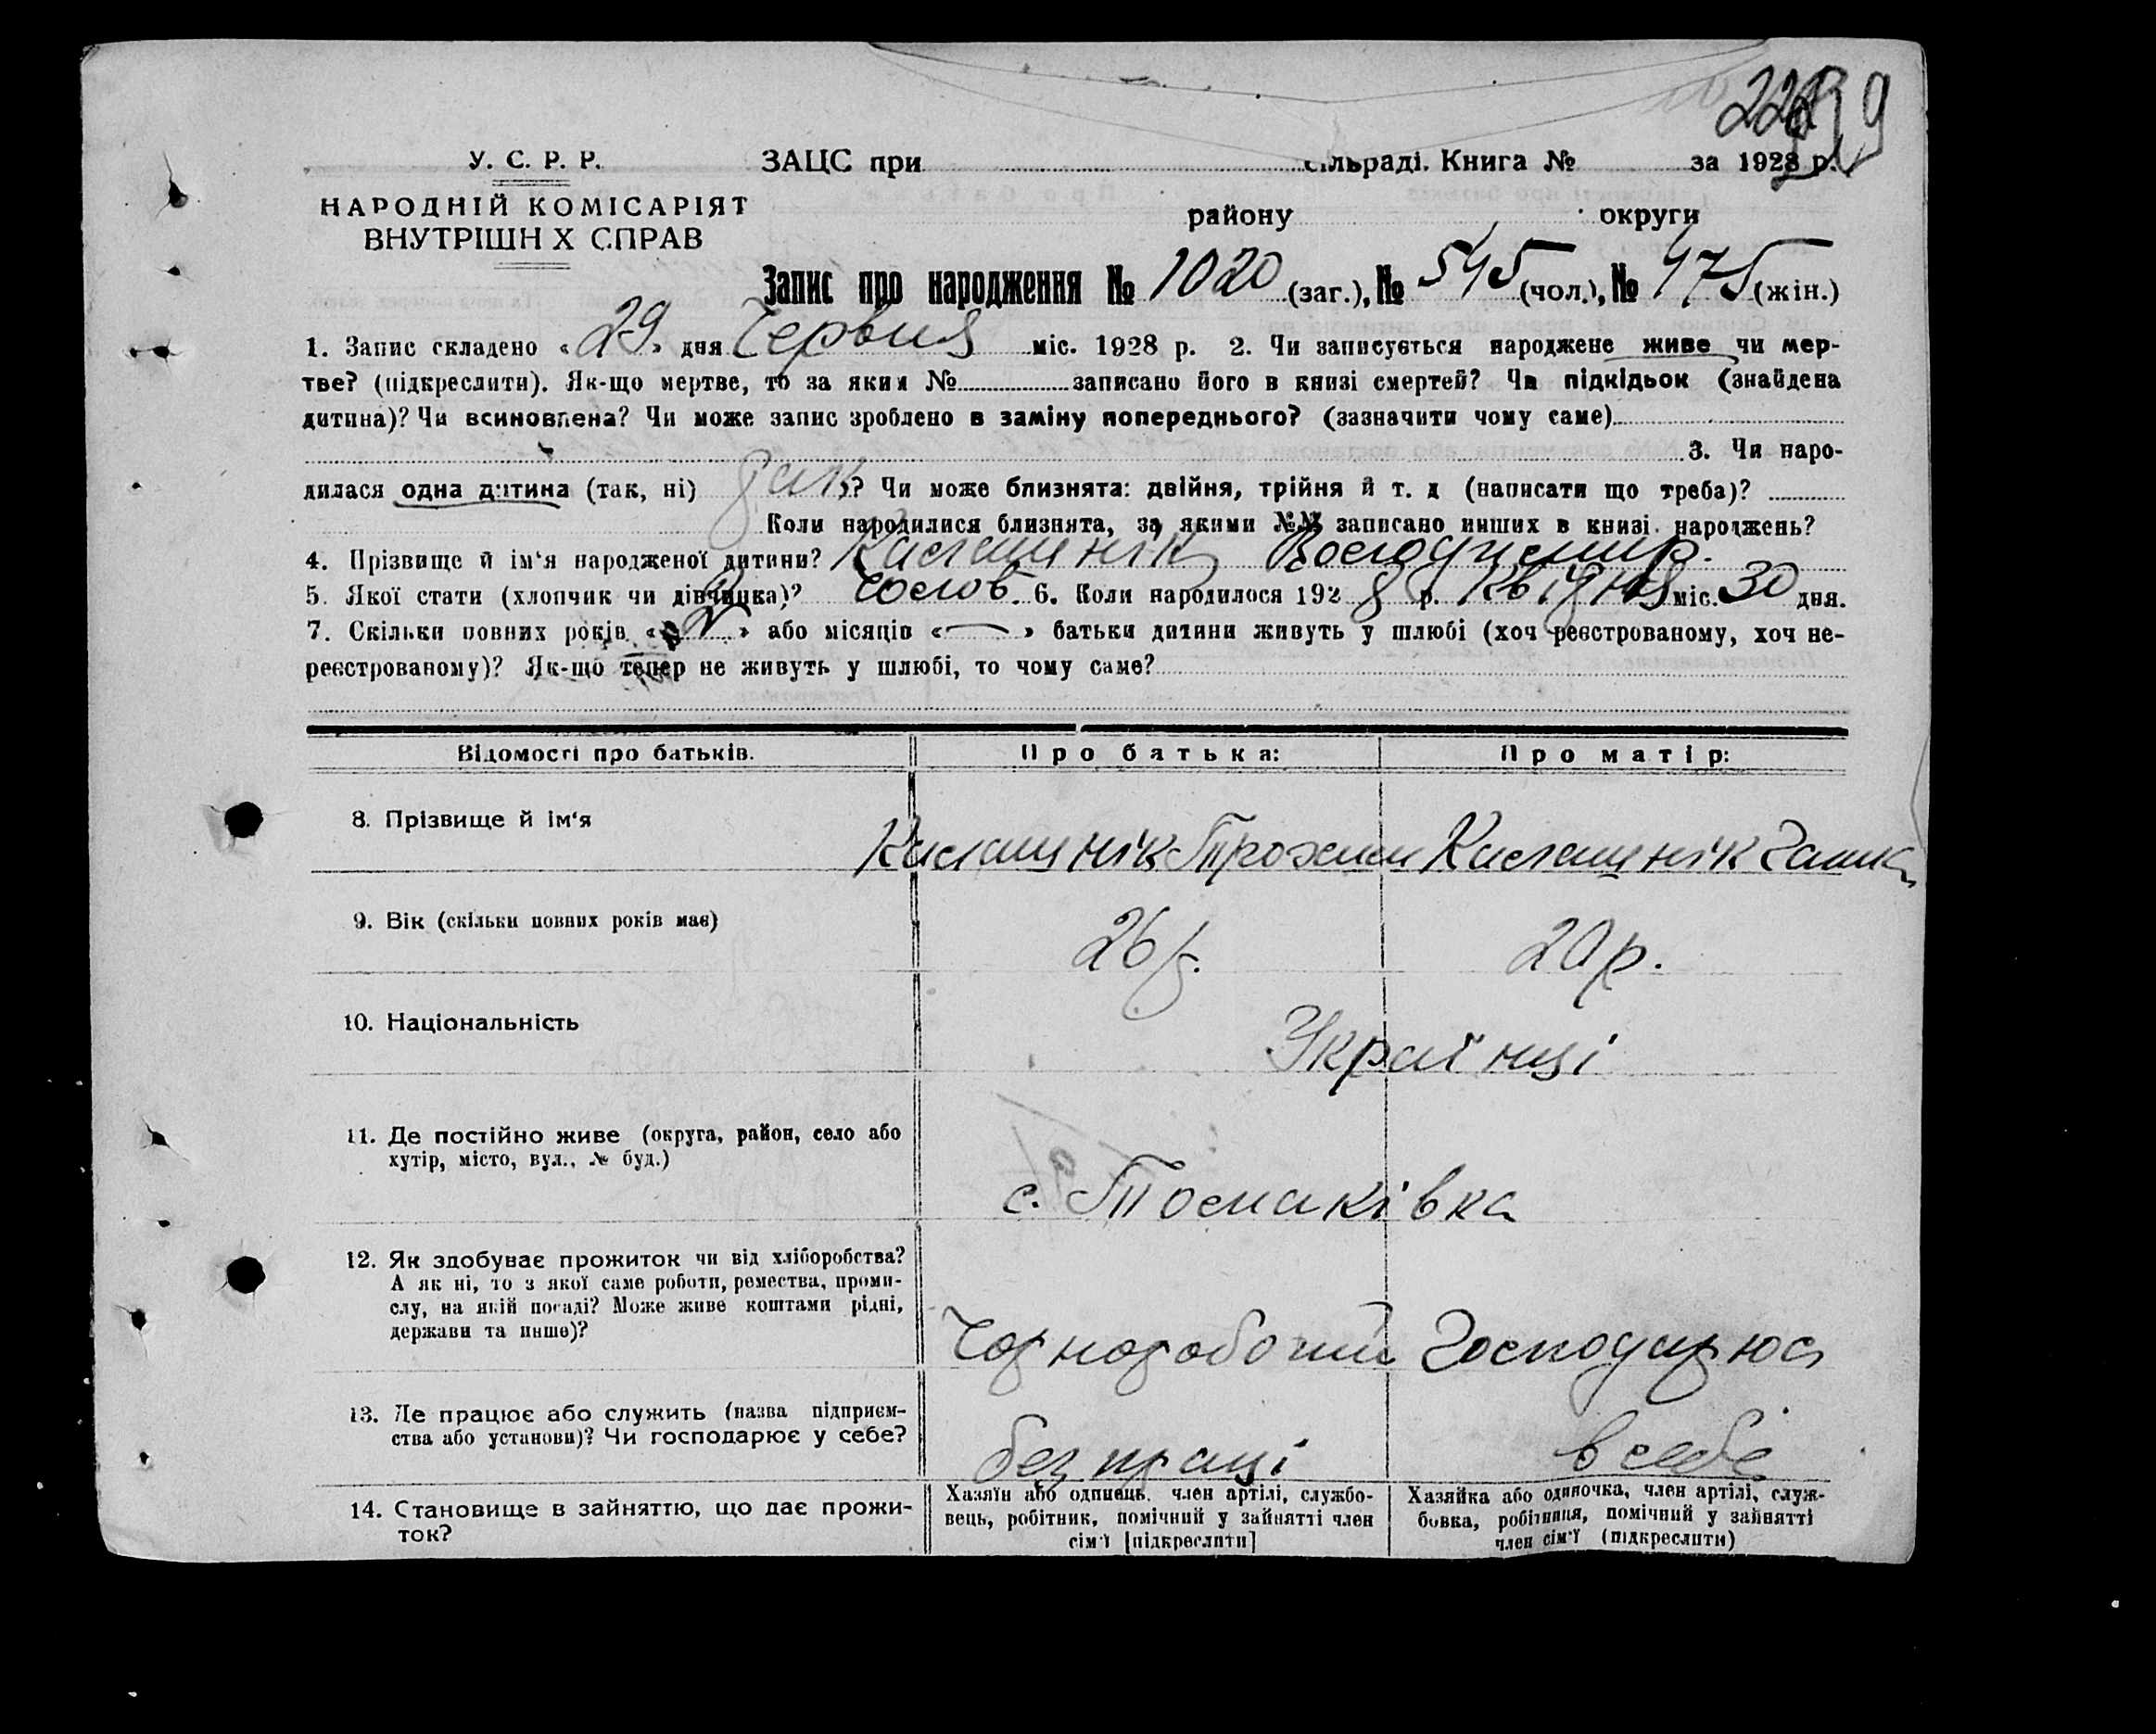 У. С. Р. Р.
НАРОДНІЙ КОМІСАРІЯТ
ВНУТРІШН Х СПРАВ
ЗАЦС при сільраді. Книга № за 1928 р.
району округи
Запис про народження № 1020 (заг.), № 545 (чол.), № 475 (жін.)
1. Запис складено «29» дня Червня міс. 1928 р. 2. Чи записується народжене живе чи мер-
тве? (підкреслити). Як-що мертве, то за яким № записано його в книзі смертей? Чи підкідьок (знайдена
дитина)? Чи всиновлена? Чи може запис зроблено в заміну попереднього? (зазначити чому саме)
3. Чи наро-
дилася одна дитина (так, ні) так? Чи може близнята: двійня, трійня й т. д (написати що треба)?
Коли народилися близнята, за якими №№ записано инших в книзі народжень?
4. Прізвище й ім'я народженої дитини? Калашнік Володимир.
5. Якої стати (хлопчик чи дівчинка)? Чолов. 6. Коли народилося 1928 р. Квітня міс. 30 дня.
7. Скільки повних років «2» або місяців «—» батьки дитини живуть у шлюбі (хоч реєстрованому, хоч не-
реєстрованому)? Як-що тепер не живуть у шлюбі, то чому саме?
Відомості про батьків. Про батька: Про матір:
8. Прізвище й ім'я Калашнік Трохим Калашнік Ганна
9. Вік (скільки повних років має) 26 р. 20 р.
10. Національність Українці
11. Де постійно живе (округа, район, село або
хутір, місто, вул., № буд.)
с. Томаківка
12. Як здобуває прожиток чи від хліборобства?
А як ні, то з якої саме роботи, ремества, проми-
слу, на якій посаді? Може живе коштами рідні,
держави та инше)?
Чорноробочий Господарюя
13. Де працює або служить (назва підприєм-
ства або установи)? Чи господарює у себе?
без праці в себе
14. Становище в зайняттю, що дає прожи-
ток?
Хазяїн або одинець, член артілі, службо-
вець, робітник, помічний у зайнятті член
сім'ї [підкреслити]
Хазяйка або одиночка, член артілі, служ-
бовка, робітниця, помічний у зайнятті
член сім'ї (підкреслити)